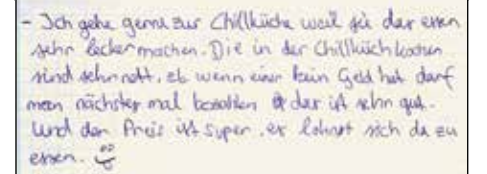 - Ich gehe gerne zur Chillküche weil sie das essen
sehr lecker machen. Die in der Chillküch kochen
sind sehr nett, eb wenn einer kein Geld hat darf
man nächster mal bezahlen das ist sehn gut.
Und den Preis ist super, es lohnt sich da zu
essen.